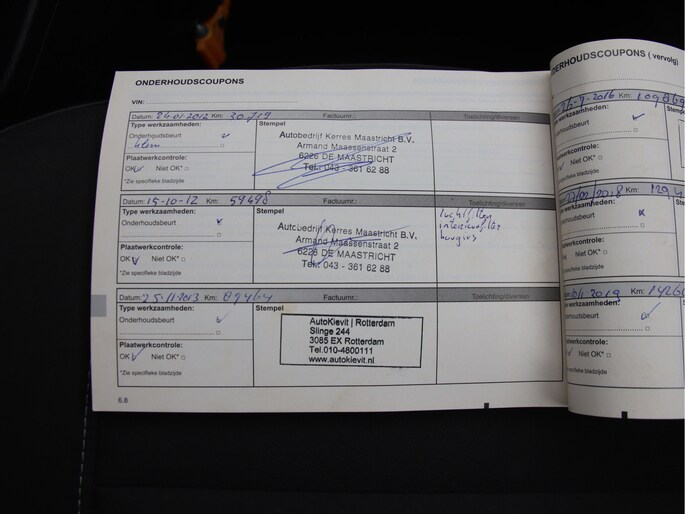 ONDERHOUDSCOUPONS
VIN:
Datum: 24-01-2012 Km: 30.719 Factuurnr.: Toelichting/diversen
Type werkzaamheden: Stempel
Onderhoudsbeurt
klein
Plaatwerkcontrole:
OK Niet OK*
*Zie specifieke bladzijde
Autobedrijf Kerres Maastricht B.V.
Armand Maassenstraat 2
6226 DE MAASTRICHT
Tel.: 043 - 361 62 88
Datum: 15-10-12 Km: 59498 Factuurnr.: Toelichting/diversen
Type werkzaamheden: Stempel
Onderhoudsbeurt
Plaatwerkcontrole:
OK Niet OK*
*Zie specifieke bladzijde
Autobedrijf Kerres Maastricht B.V.
Armand Maassenstraat 2
6226 DE MAASTRICHT
Tel.: 043 - 361 62 88
luchtfilter
interieurfilter
bougies
Datum: 25-11-2013 Km: Factuurnr.: Toelichting/diversen
Type werkzaamheden: Stempel
Onderhoudsbeurt
Plaatwerkcontrole:
OK Niet OK*
*Zie specifieke bladzijde
AutoKievit | Rotterdam
Slinge 244
3085 EX Rotterdam
Tel.010-4800111
www.autokievit.nl
6.8
ONDERHOUDSCOUPONS ( vervolg)
2016 Km:
werkzaamheden:
Niet OK*
2018 Km:
werkzaamheden:
Niet OK*
2019 Km:
Niet OK*